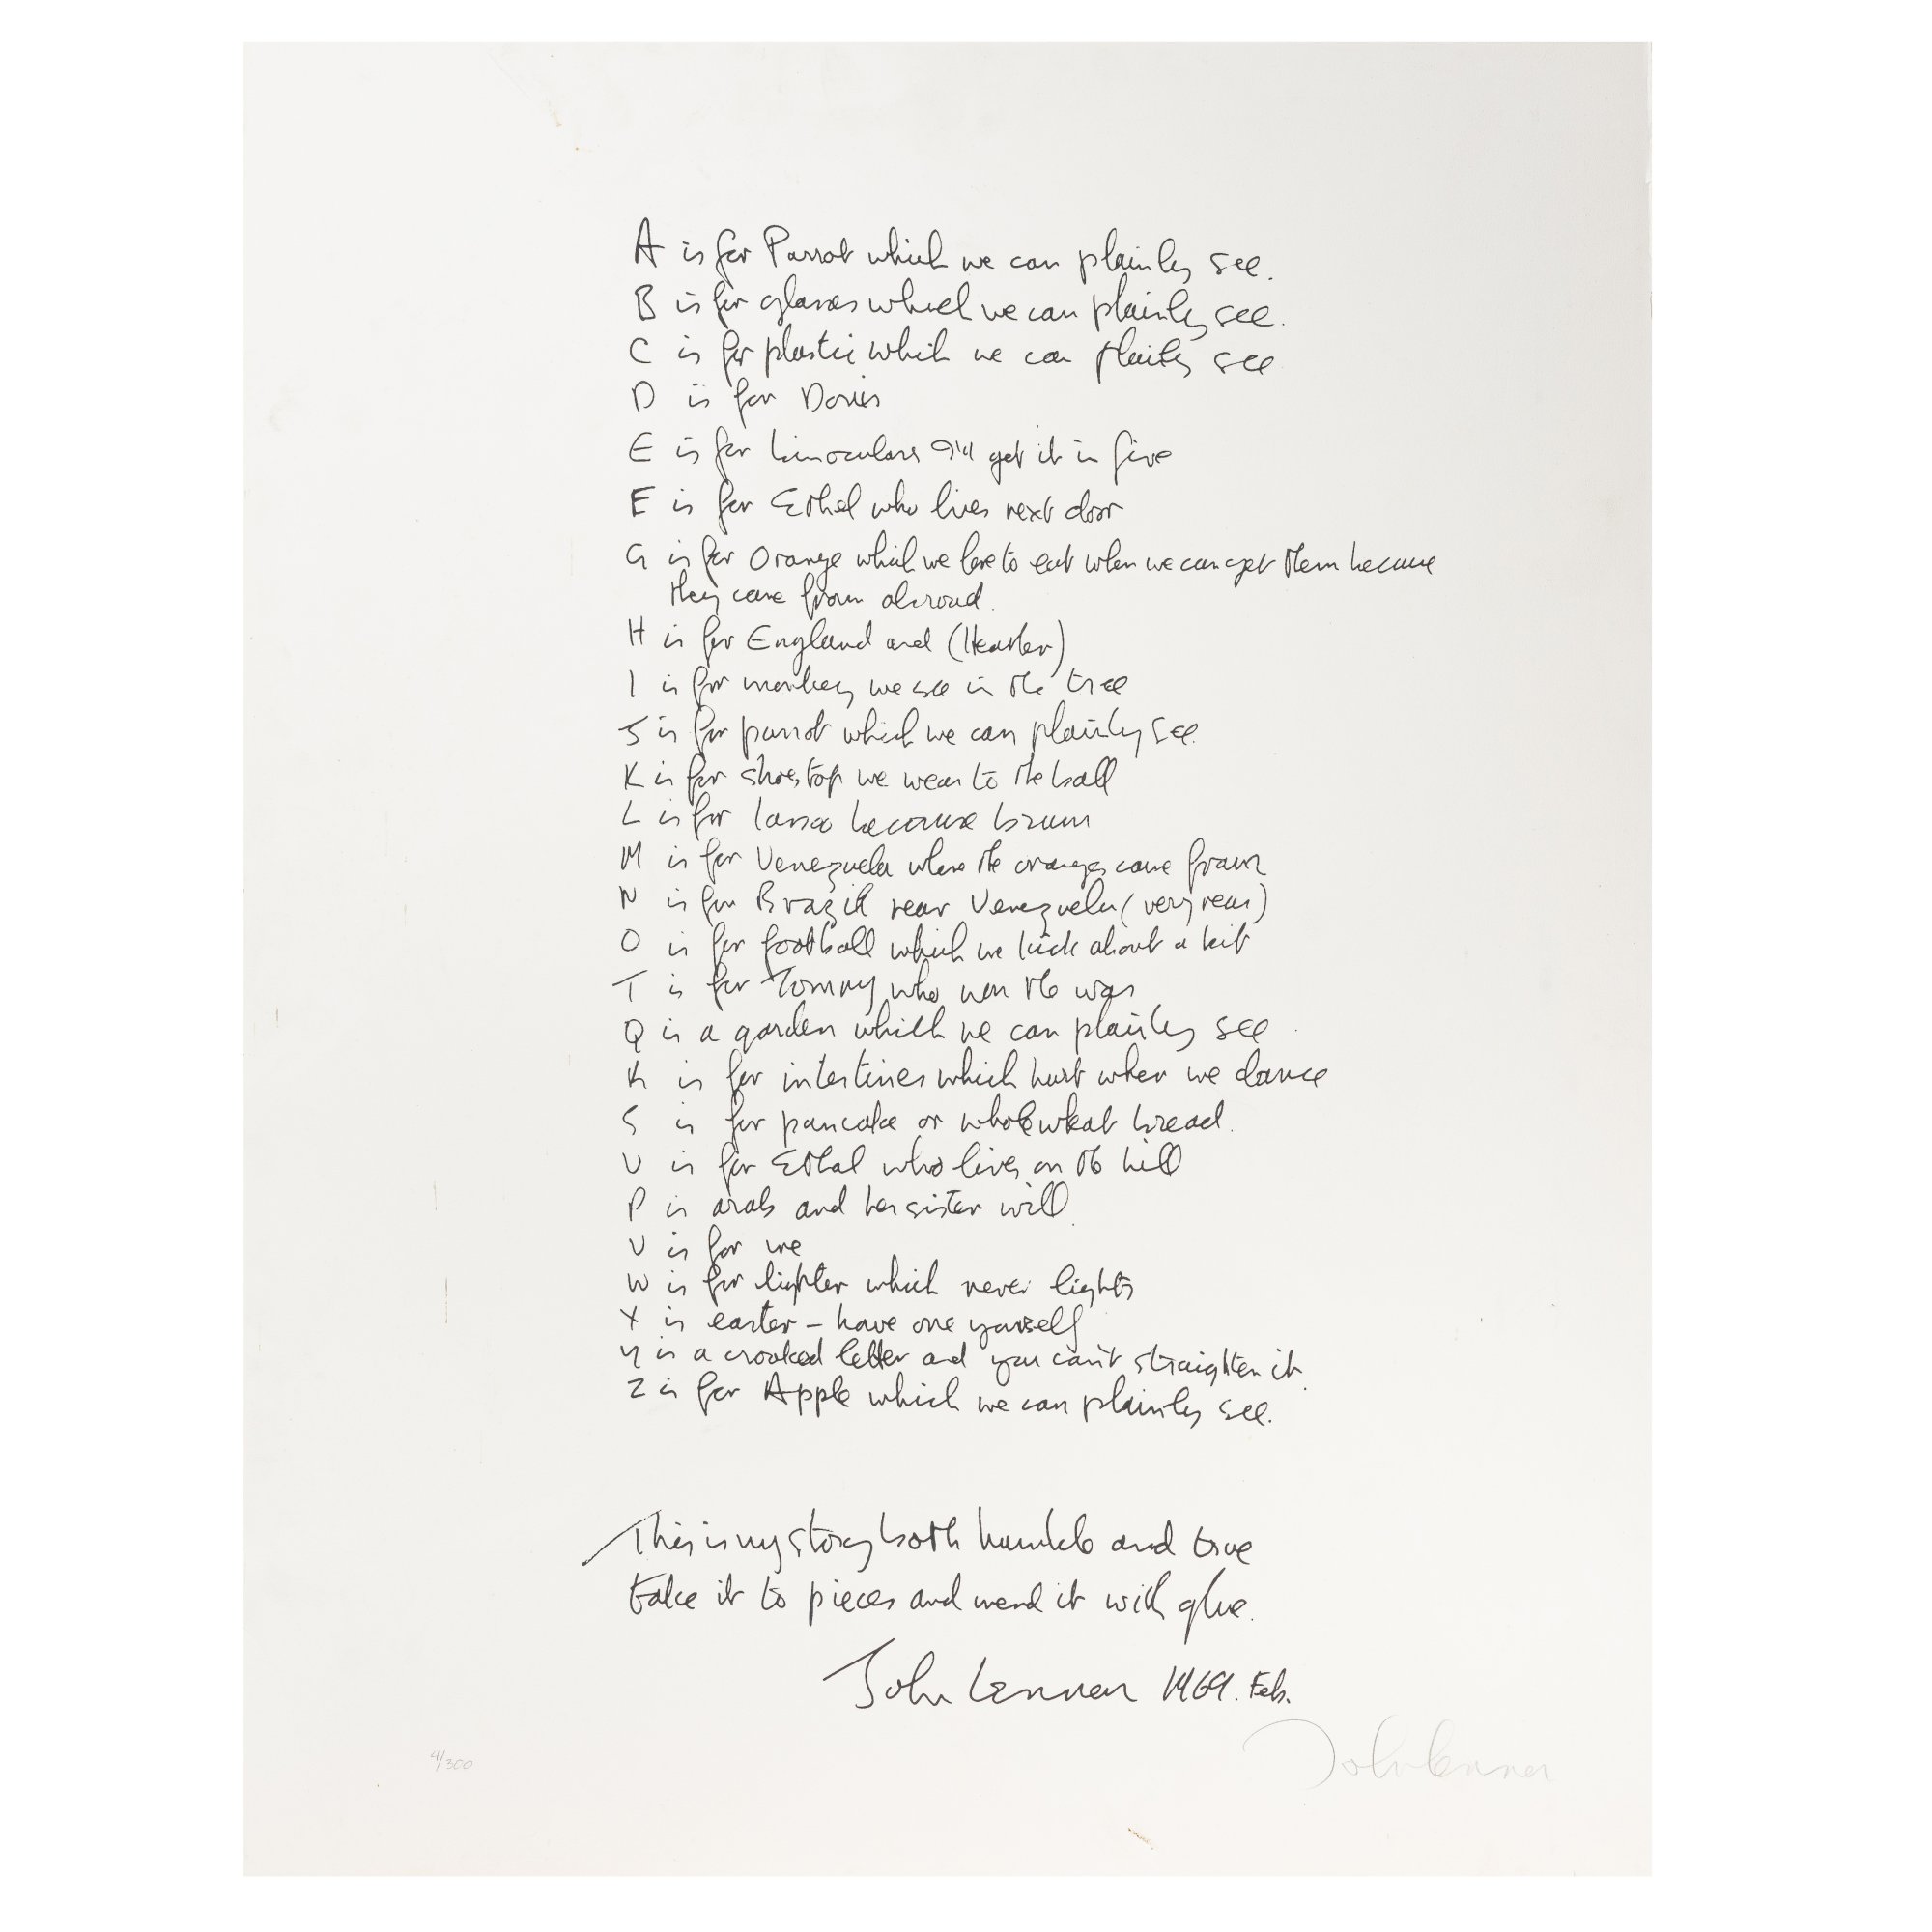 A is for Parrot which we can plainly see.
B is for glasses which we can plainly see.
C is for plastic which we can plainly see
D is for Doris
E is for binoculars I'll get it in five
F is for Ethel who lives next door
G is for Orange which we love to eat when we can get them because
they come from abroad.
H is for England and (Heather)
I is for monkey we see in the tree
J is for parrot which we can plainly see
K is for shoestop we wear to the ball
L is for lassoo because brum
M is for Venezuela where the oranges come from
N is for Brazil near Venezuela (very near)
O is for football which we kick about a bit
T is for Tommy who won the war
Q is a garden which we can plainly see.
R is for intestines which hurt when we dance
S is for pancake or wholewheat bread.
U is for Ethel who lives on the hill
P is arab and her sister will.
V is for we
W is for lighter which never lights
X is easter – have one yourself
Y is a crooked letter and you can't straighten it.
Z is for Apple which we can plainly see.
This is my story both humble and true
take it to pieces and mend it with glue.
John Lennon 1969. Feb.
4/300
John Lennon